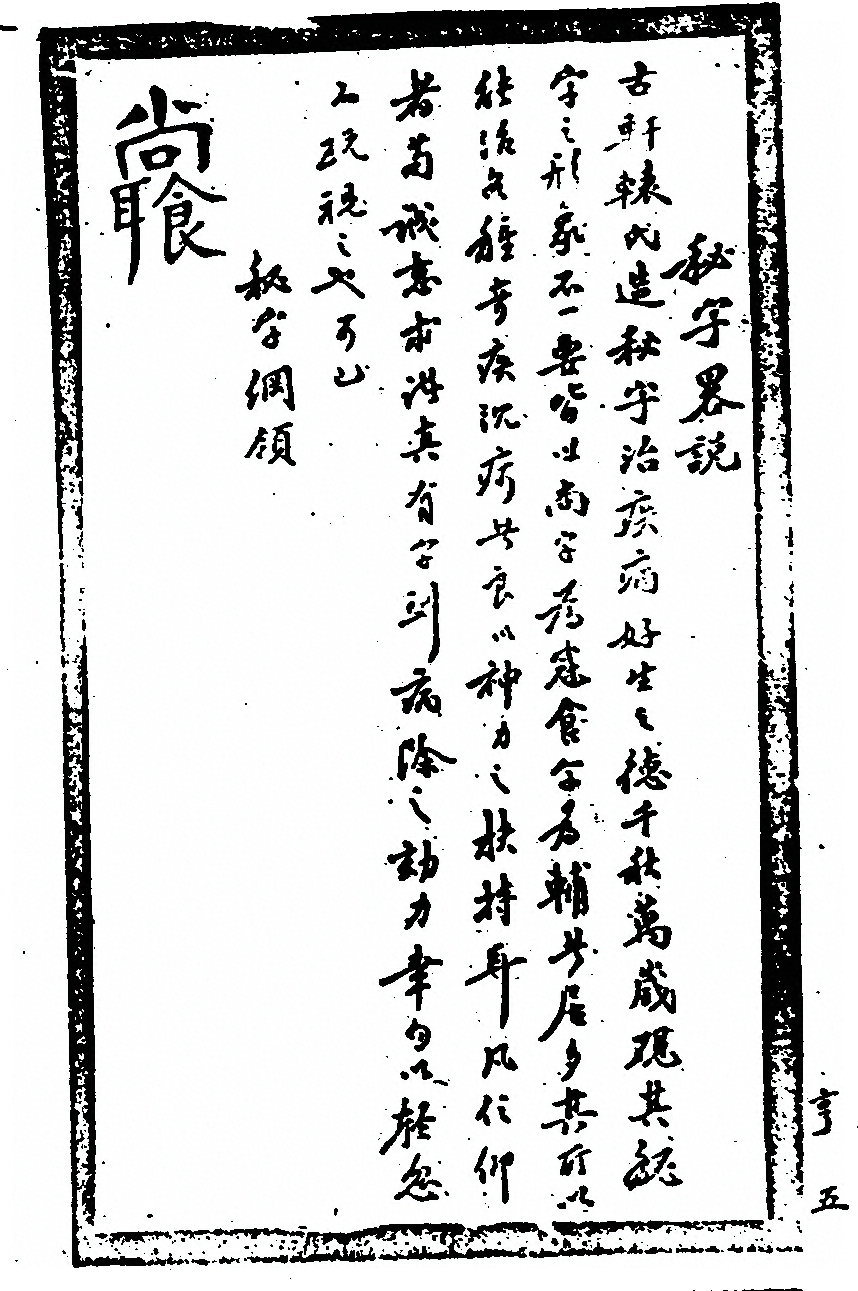 秘字畧説
古軒轅氏造秘字治疾病好生之德千秋萬歲現其秘
字之形象不一要皆以尚字為冠食字為輔者居多其所以
能治各種奇疾沉疴者良以神力之扶持耳凡信仰
者苟誠意求洪真有字到病除之効力幸勿以輕忽
玩視之也可也
秘字綱領
亨 五